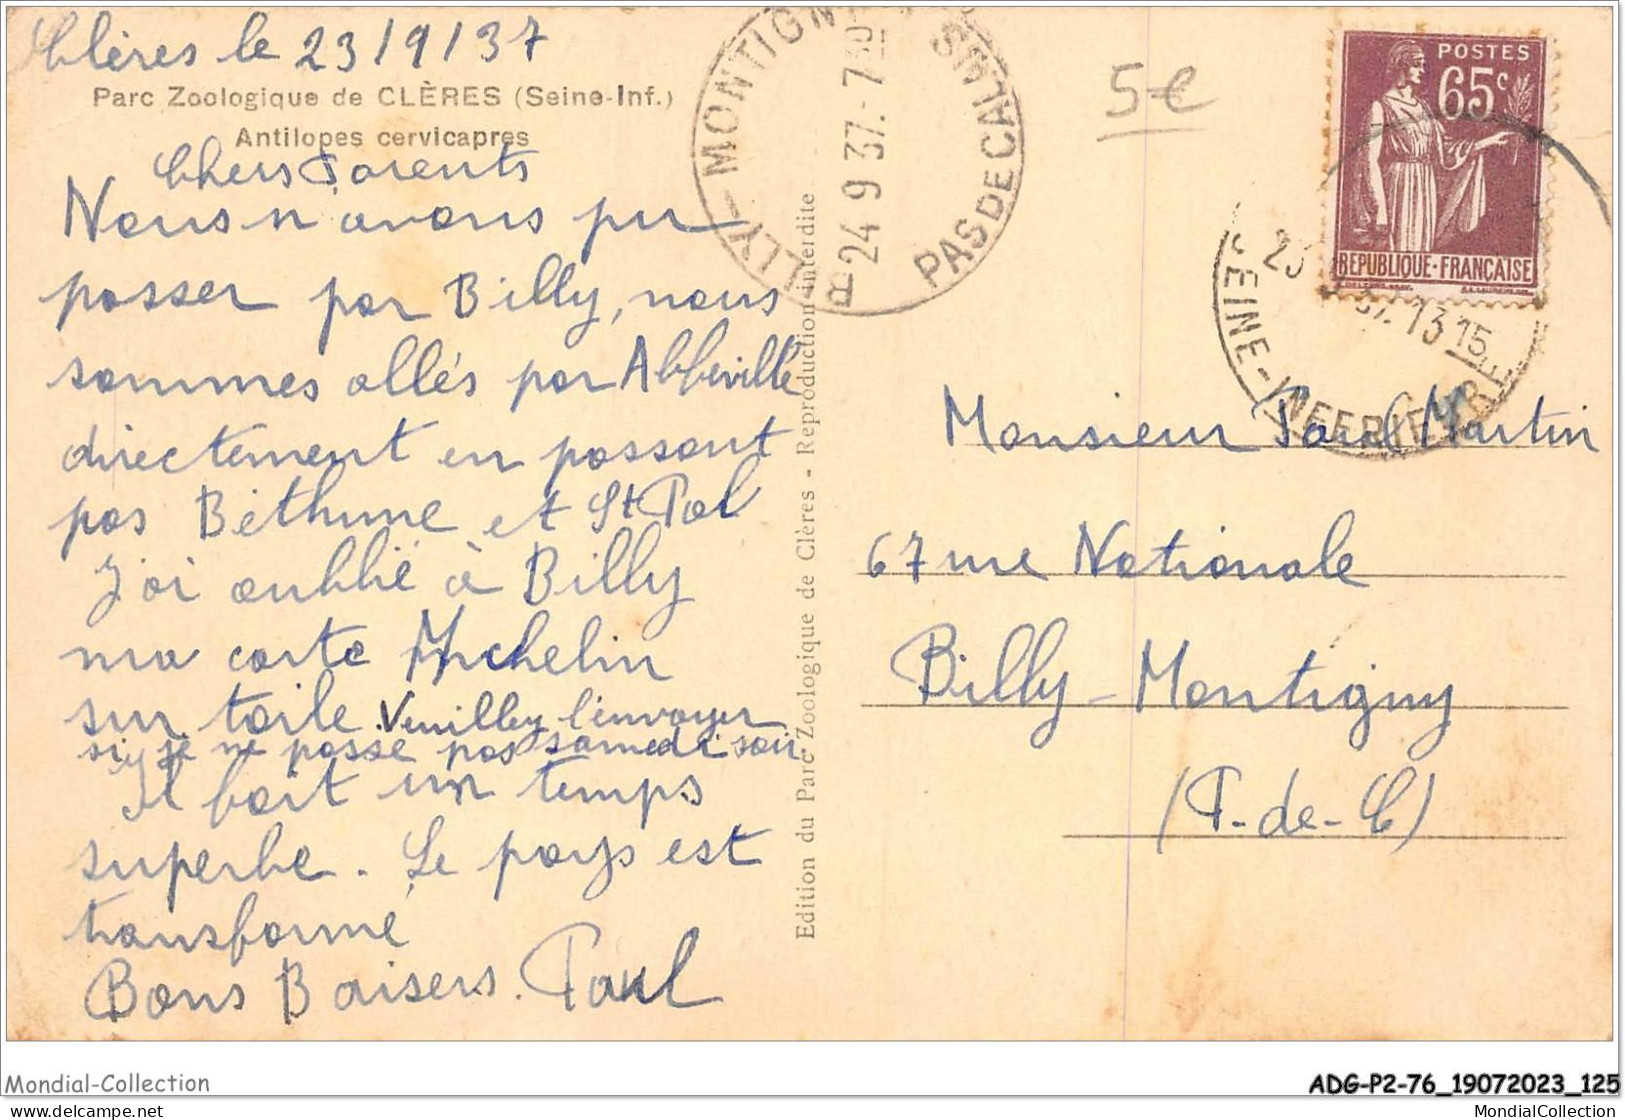 Clères le 23/9/37
Parc Zoologique de CLÈRES (Seine-Inf.)
Antilopes cervicapres
Chers Parents
Nous n'avons pu
passer par Billy, nous
sommes allés par Abbeville
directement en passant
pas Béthune et St Pol
J'ai oublié à Billy
ma carte Michelin
sur toile. Veuillez l'envoyer
si je ne passe pas samedi soir
Il fait un temps
superbe. Le pays est
transformé
Bons Baisers. Paul
Edition du Parc Zoologique de Clères - Reproduction interdite
BILLY-MONTIGNY PAS DE CALAIS
24 9 37.- 7 30
5€
POSTES
65c
REPUBLIQUE-FRANÇAISE
37. 13 15
SEINE-INFERIEURE
Monsieur Paul Martin
67 rue Nationale
Billy-Montigny
(P-de-C)
Mondial-Collection
ADG-P2-76_19072023_125
delcampe.net
MondialCollection